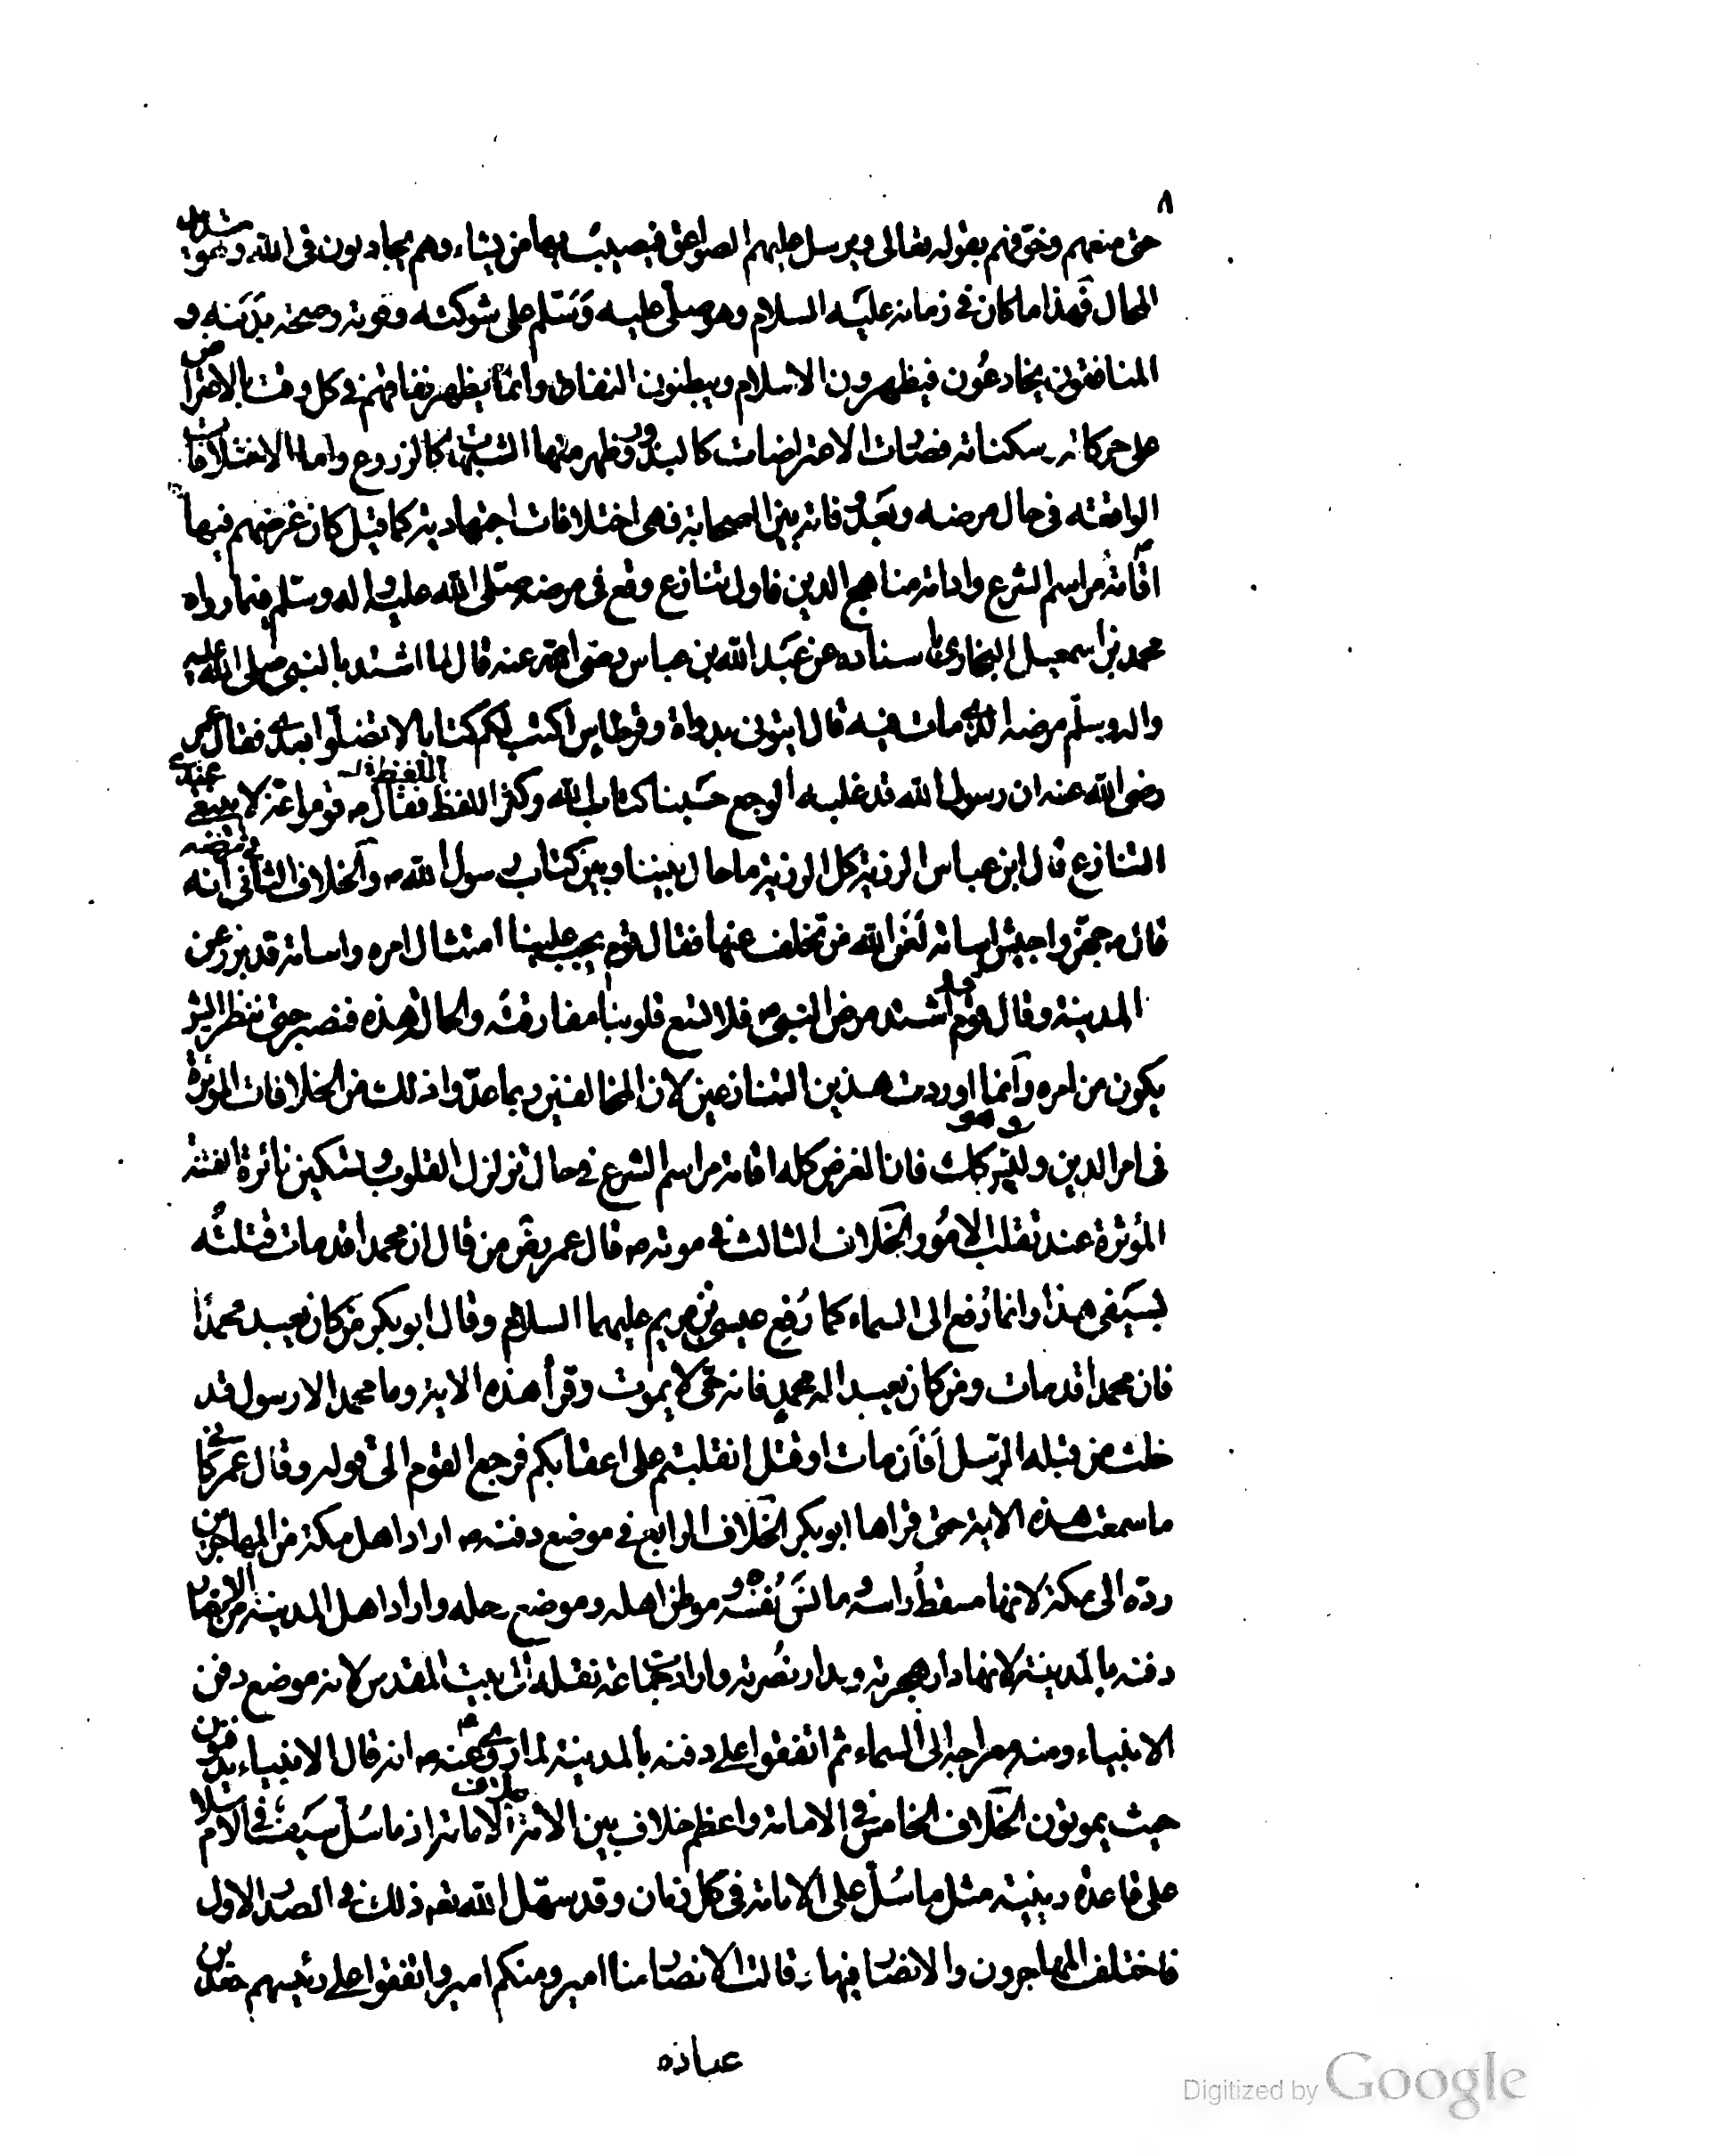 ٨
حتى منعهم وخوفهم بقوله تعالى ويرسل عليهم الصواعق فيصيب بها من يشاء وهم يجادلون في الله وهو شديد
المحال فهذا ما كان في زمانه عليه السلام وهو صلى عليه وسلم على شوكته وقوته وصحة بدنه و
المنافقون يخادعون فيظهرون الاسلام ويبطنون النفاق وانما يظهر نفاقهم في كل وقت بالاعتراض
على حركاته وسكناته فصارت الاعتراضات كالبذور وظهر منها الشبهات كالزروع واما الاختلافات
الواقعة في حال مرضه وبعد وفاته بين الصحابة فهي اختلافات اجتهادية كما قيل كان غرضهم فيها
اقامة مراسم الشرع وادامة مناهج الدين فاول تنازع وقع في مرضه صلى الله عليه واله وسلم فيما رواه
محمد بن اسمعيل البخاري باسناده عن عبد الله بن عباس رضى الله عنه قال لما اشتد بالنبي صلى الله عليه
واله وسلم مرضه الذي مات فيه قال ايتوني بدواة وقرطاس اكتب لكم كتابا لا تضلوا بعدى فقال عمر
رضى الله عنه ان رسول الله قد غلبه الوجع حسبنا كتاب الله وكثر اللغط فقال ص قوموا عنى لا ينبغي عندى
التنازع قال ابن عباس الرزية كل الرزية ما حال بيننا وبين كتاب رسول الله ص والخلاف الثاني في مرضه انه
قال ص جهزوا جيش اسامة لعن الله من تخلف عنها فقال قوم يجب علينا امتثال امره واسامة قد برز عن
المدينة وقال قوم قد اشتد مرض النبي ص فلا تسع قلوبنا مفارقته والحال هذه فنصبر حتى ننظر اى شئ
يكون من امره وانما اوردت هذين التنازعين لان المخالفين ربما عدوا ذلك من الخلافات المؤثرة
في امر الدين وليس كذلك وهو فان الغرض كله اقامة مراسم الشرع في حال تزلزل القلوب وتسكين نائرة الفتنة
المؤثرة عند تقلب الامور الخلاف الثالث في موته ص قال عمر رض من قال ان محمدا قد مات قتلته
بسيفي هذا وانما رفع الى السماء كما رفع عيسى بن مريم عليهما السلام وقال ابو بكر من كان يعبد محمدا
فان محمدا قد مات ومن كان يعبد اله محمد فانه حى لا يموت وقرأ هذه الاية وما محمد الا رسول قد
خلت من قبله الرسل أفان مات او قتل انقلبتم على اعقابكم فرجع القوم الى قوله وقال عمر كانى
ما سمعت هذه الاية حتى قراها ابو بكر الخلاف الرابع في موضع دفنه ص اراد اهل مكة من المهاجرين
رده الى مكة لانها مسقط راسه ومانس نفسه وموطن اهله وموضع رحله واراد اهل المدينة من الانصار
دفنه بالمدينة لانها دار هجرته وبدار نصرته وارادت جماعة نقله الى بيت المقدس لانه موضع دفن
الانبياء ومنه معراجه الى السماء ثم اتفقوا على دفنه بالمدينة لما روى عنه ص انه قال الانبياء يدفنون
حيث يموتون الخلاف الخامس في الامامة واعظم خلاف بين الامة خلاف الامامة اذ ما سل سيف في الاسلام
على قاعدة دينية مثل ما سل على الامامة في كل زمان وقد سهل الله تعم ذلك في الصدر الاول
فاختلف المهاجرون والانصار فيها وقالت الانصار منا امير ومنكم امير واتفقوا على رئيسهم سعد بن
عبادة
Digitized by Google